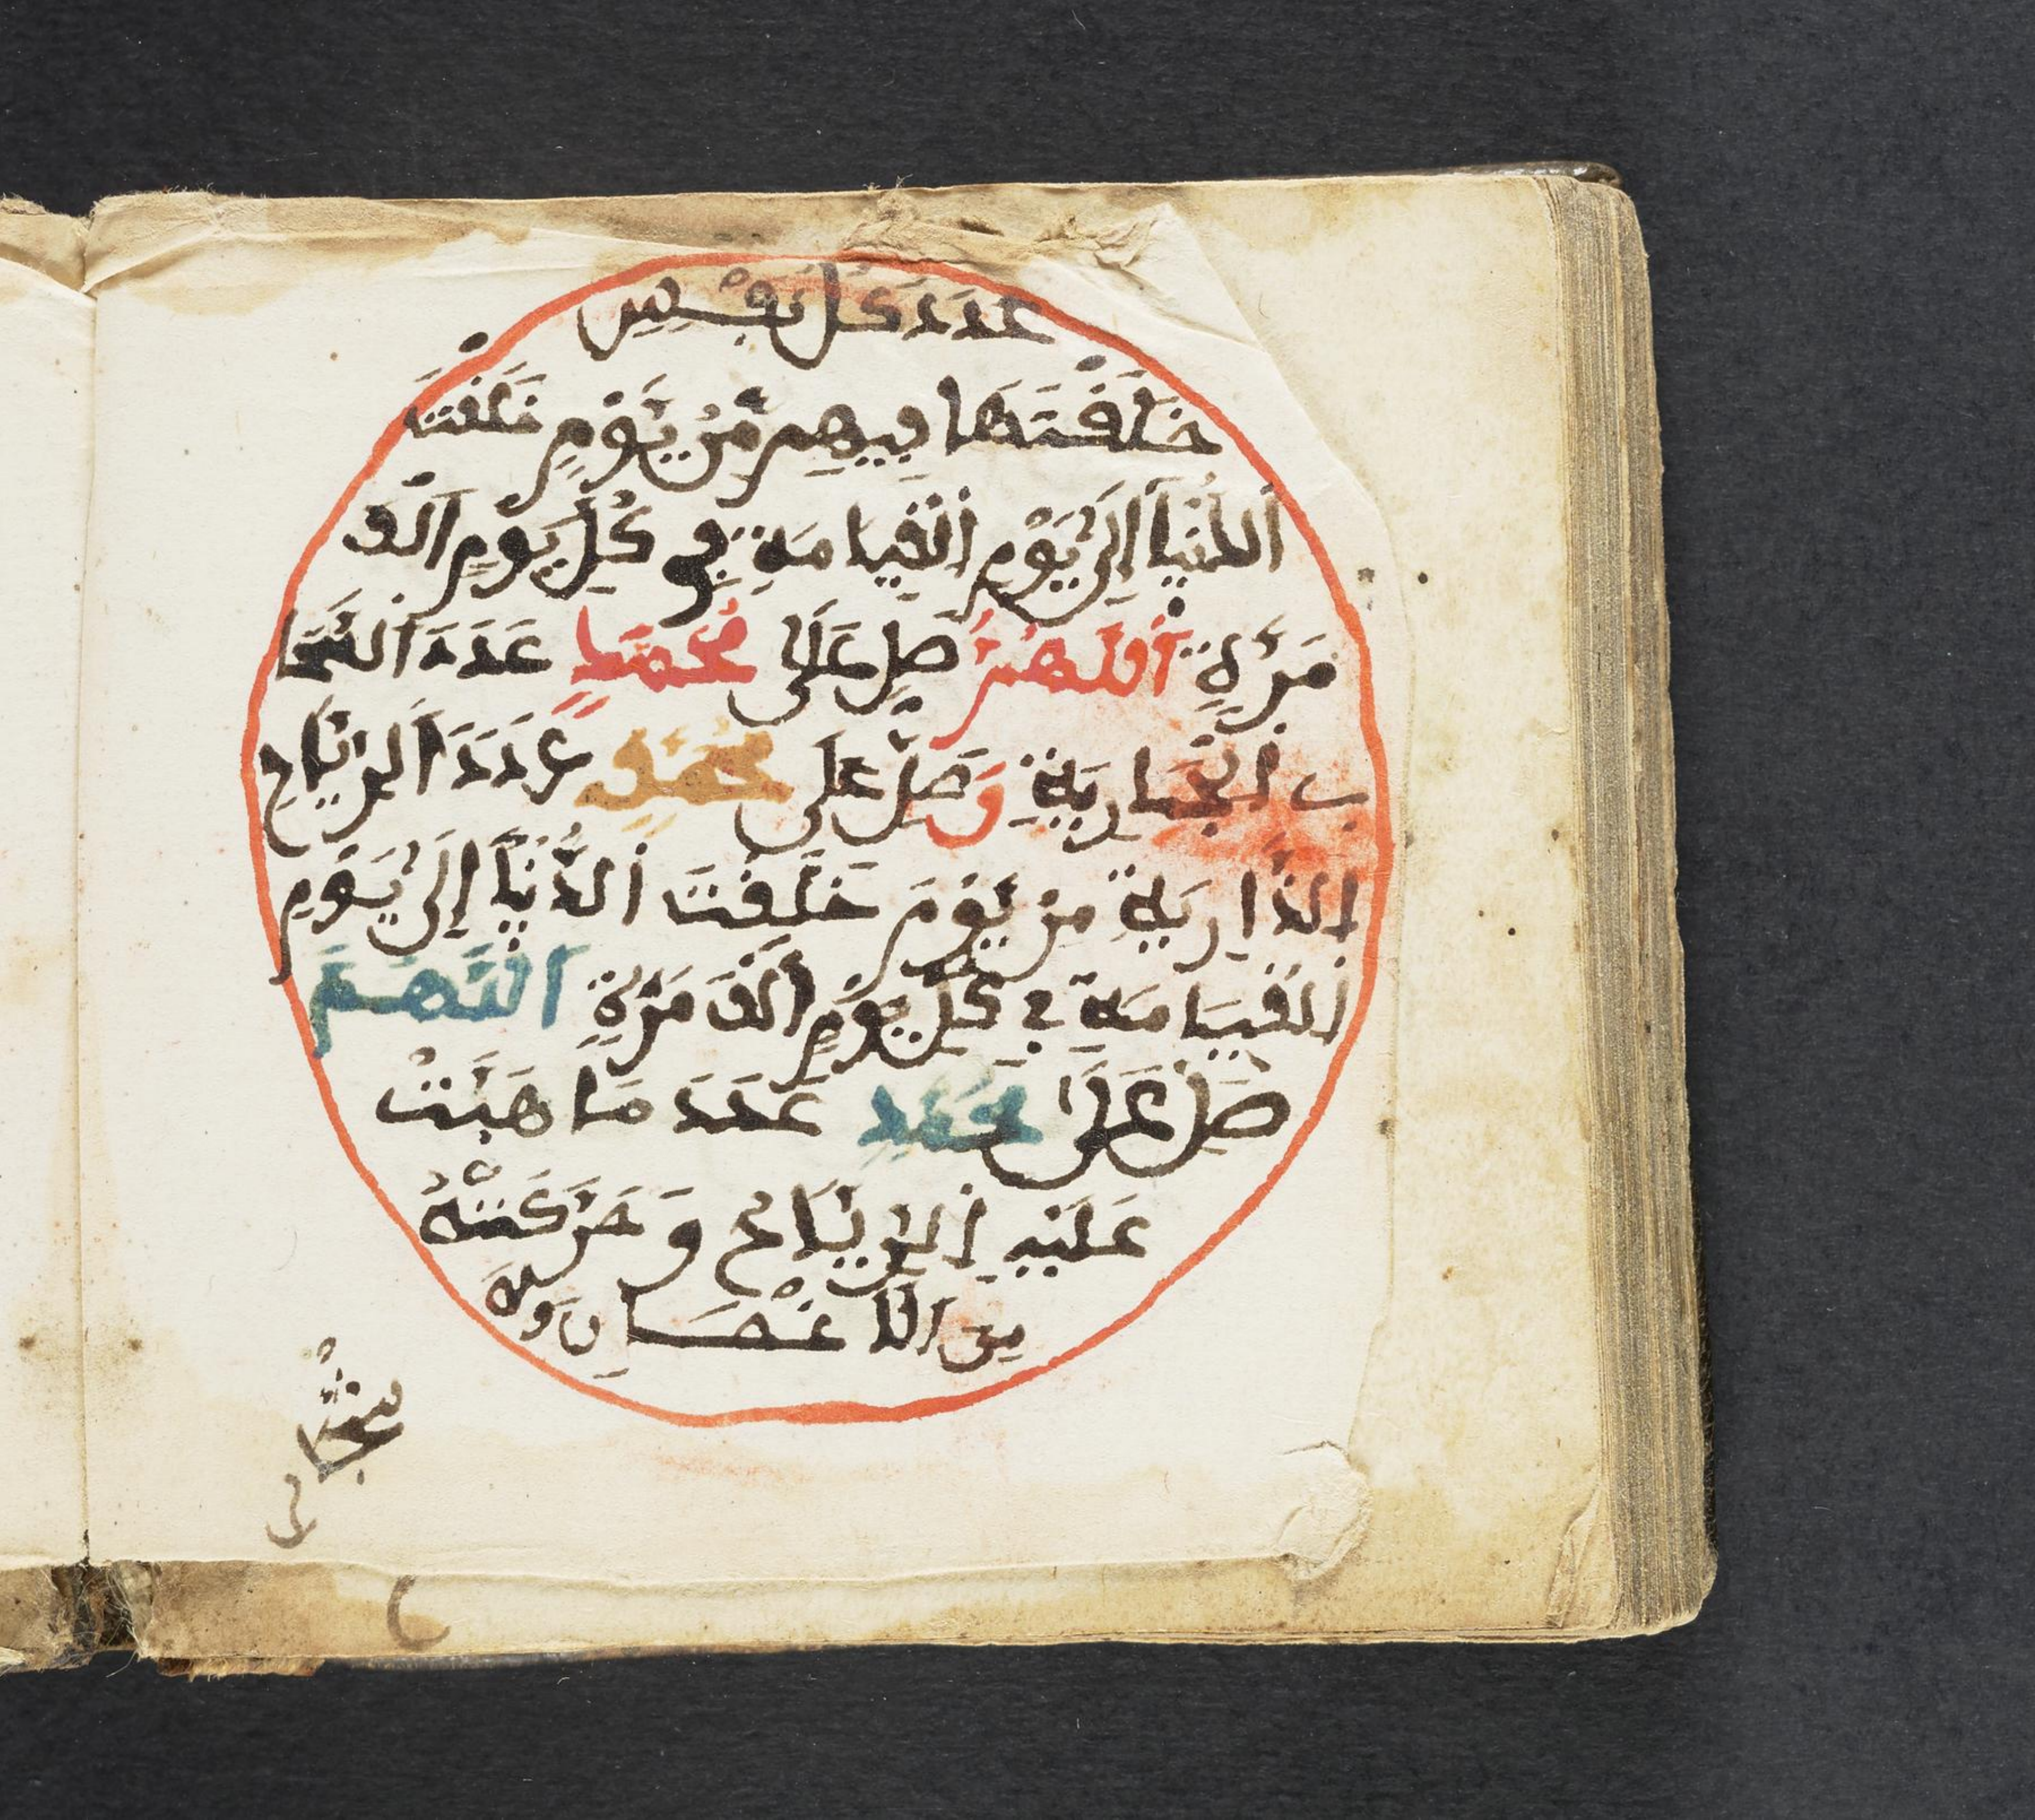 عَدَدَ كُلِّ نَفْسٍ
خَلَقْتَهَا فِيهِم مِّنْ يَّوْمِ خَلَقْتَ
اَلدُّنْيَا إِلَى يَوْمِ اِلْقِيَامَةِ فِي كُلِّ يَوْمٍ اَلْفَ
مَرَّةٍ اَللَّهُمَّ صَلِّ عَلَى مُحَمَّدٍ عَدَدَ اَلسَّحَا
بِ اِلْجَارِيَةِ وَصَلِّ عَلَى مُحَمَّدٍ عَدَدَ اَلرِّيَاحِ
اِلذَّارِيَةِ مِنْ يَّوْمَ خَلَقْتَ اَلدُّنْيَا إِلَى يَوْمِ
اِلْقِيَامَةِ فِي كُلِّ يَوْمٍ اَلْفَ مَرَّةٍ اَللَّهُمَّ
صَلِّ عَلَى مُحَمَّدٍ عَدَدَ مَا هَبَّتْ
عَلَيْهِ اِلرِّيَاحُ وَحَرَّكَتْهُ
مِنَ اَلَاغْصَانِ وَالَا
شْجَا
رِ